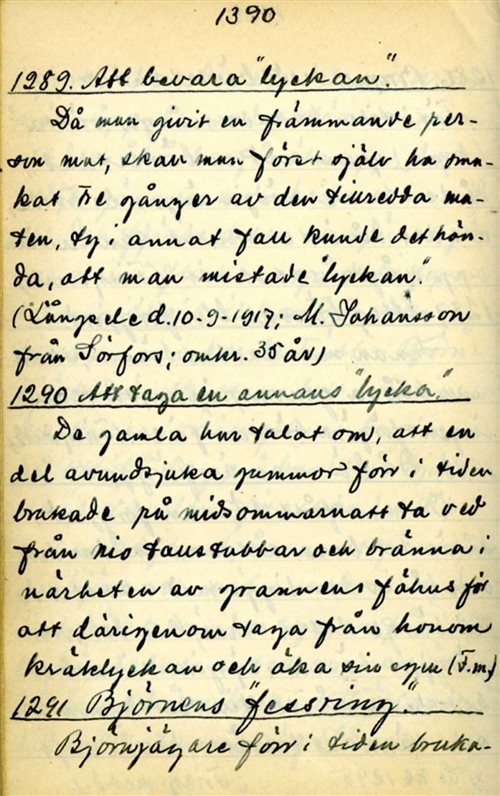 1390
1289. Att bevara "lyckan".
Då man givit en främmande per-
son mat, skall man först själv ha sma-
kat tre gånger av den tillredda ma-
ten, ty i annat fall kunde det hän-
da, att man mistade "lyckan".
(Långsele d. 10-9-1917; M. Johansson
från Sörfors; omkr. 35 år)
1290 Att taga en annans "lycka".
De gamla har talat om, att en
del avundsjuka gummor förr i tiden
brukade på midsommarnatt ta ved
från nio tallstubbar och bränna i
närheten av grannens fähus för
att därigenom taga från honom
kräklyckan och öka sin egen (F.m.)
1291 Björnens "fessring".
Björnjägare förr i tiden bruka-